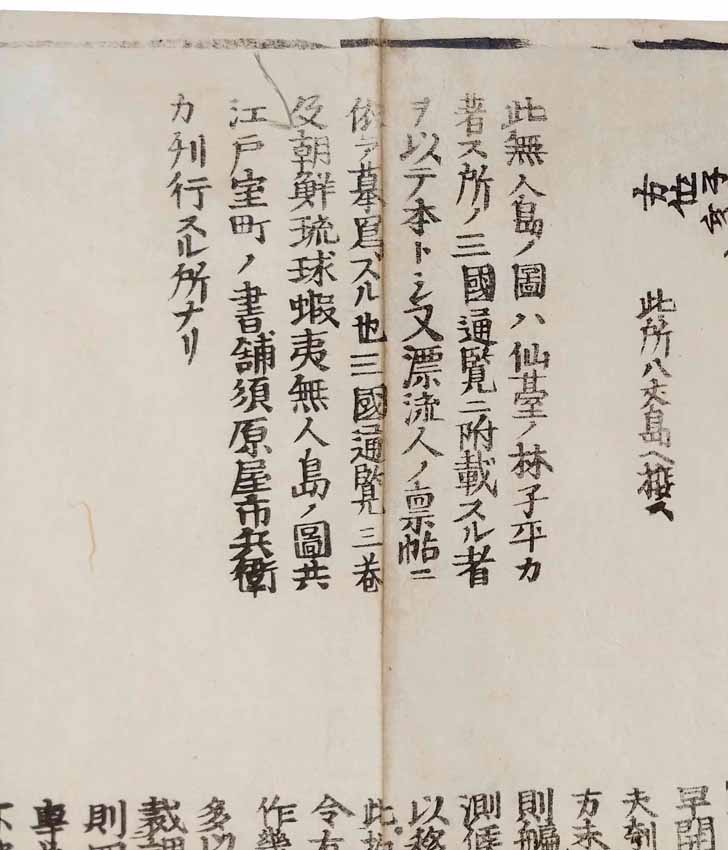 子
方位
此所八丈島ヘ
此無人島ノ圖ハ仙臺ノ林子平カ
著ス所ノ三國通覧ニ附載スル者
ヲ以テ本トシ又漂流人ノ禀帖ニ
依テ摹寫スル也三國通覧三巻
及朝鮮琉球蝦夷無人島ノ圖共
江戸室町ノ書舗須原屋市兵衛
カ刋行スル所ナリ
早開
夫
方未
則
測
以
此
令
作
多以
裁
則